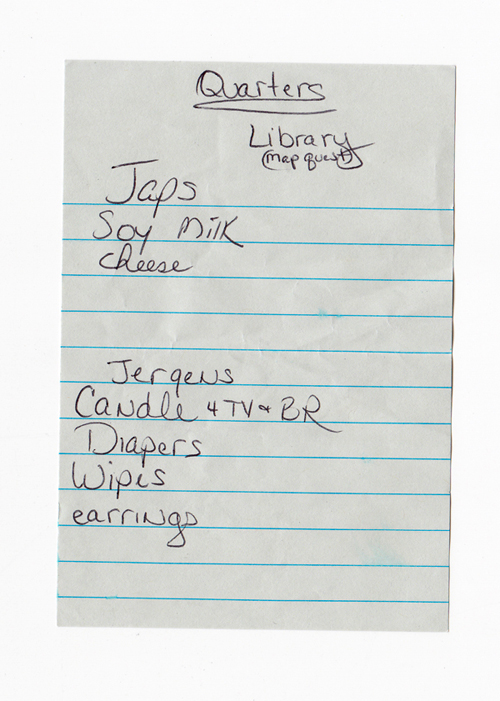 Quarters
Library
(map quest)
Japs
Soy Milk
cheese
Jergens
Candle 4 TV + BR
Diapers
Wipes
earrings